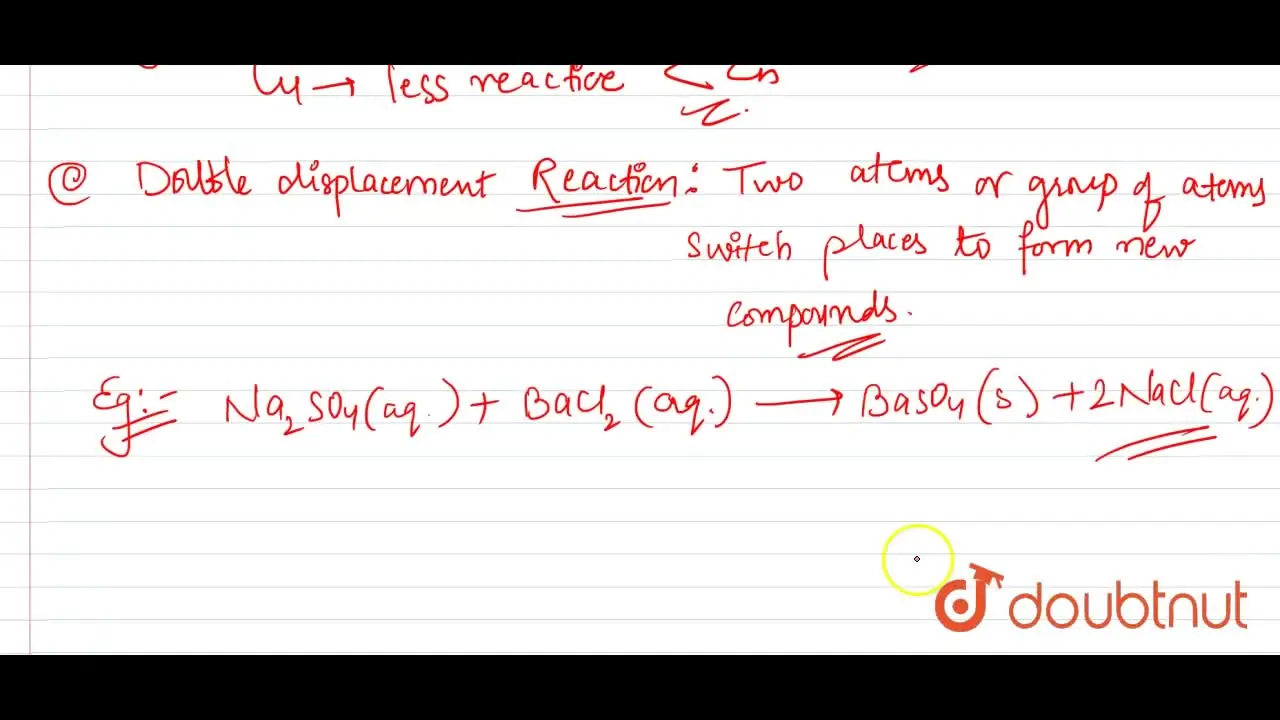 Cu → less reactive Zn
@ Double displacement Reaction: Two atoms or group of atoms
switch places to form new
compounds.
Eg:- Na₂SO₄(aq.) + BaCl₂(aq.) → BaSO₄(s) + 2NaCl(aq.)
doubtnut